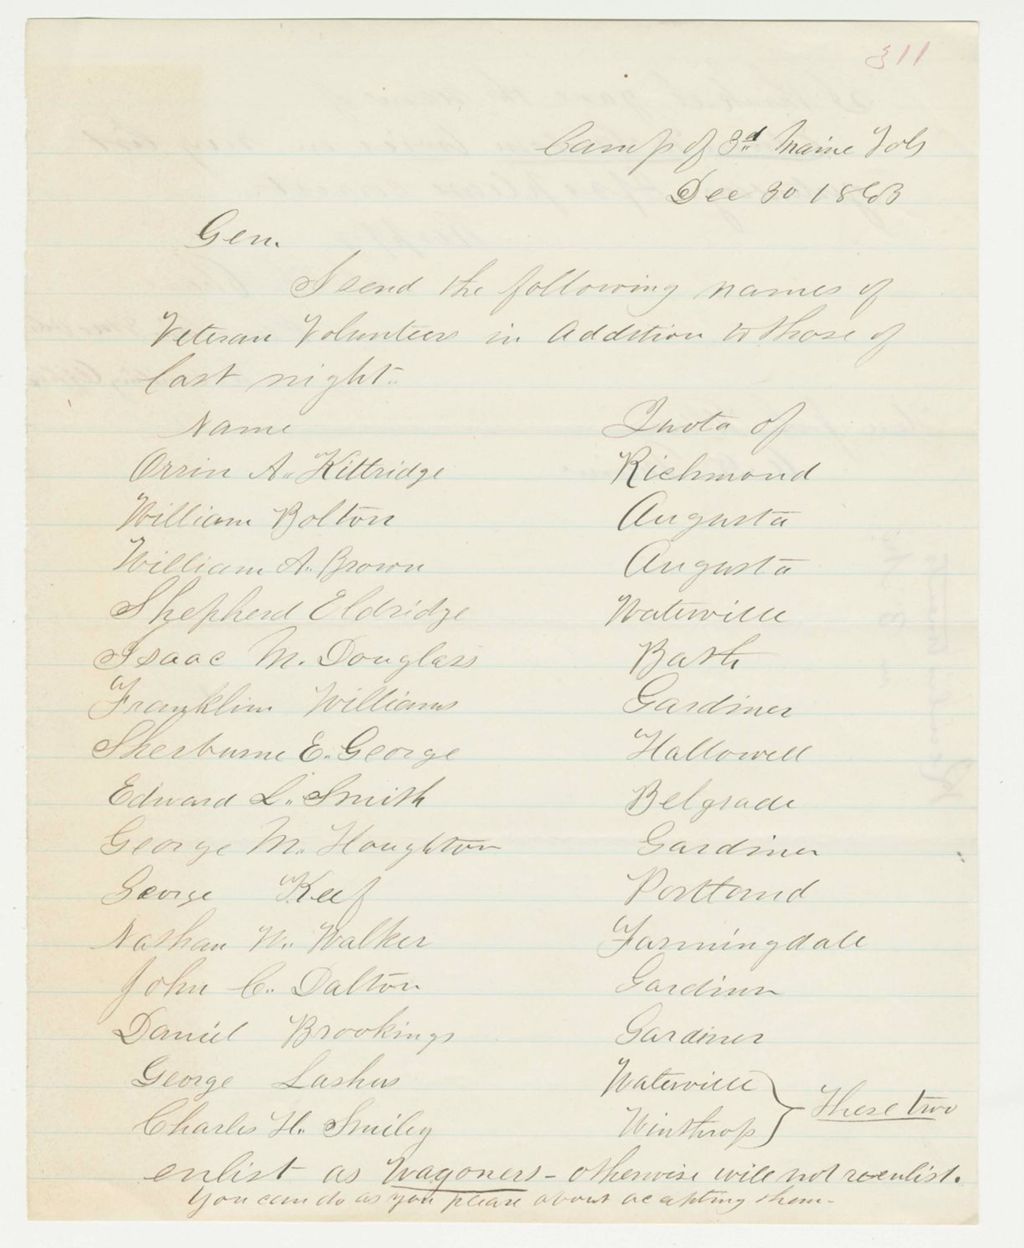 311
Camp of 3d Maine Vols
Dec 30 1863
Gen.
I send the following names of
Veteran Volunteers in addition to those of
last night.
Name Quota of
Orrin A. Kittridge Richmond
William Bolton Augusta
William A. Brown Augusta
Shepherd Eldridge Waterville
Isaac M. Douglass Bath
Franklin Williams Gardiner
Sherburne E. George Hallowell
Edward L. Smith Belgrade
George M. Houghton Gardiner
George Keef Portland
Nathan W. Walker Farmingdale
John C. Dalton Gardiner
Daniel Brookings Gardiner
George Lashus Waterville
Charles H. Smiley Winthrop } These two
enlist as Wagoners - otherwise will not reenlist.
You can do as you please about accepting them -